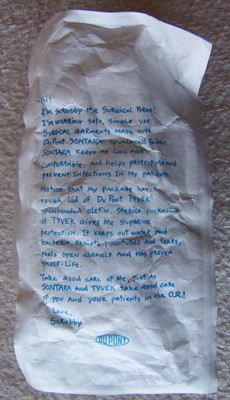 Hi!
I'm Scrubby the Surgical Bear!
I'm wearing safe, single-use
surgical garments made with
Du Pont SONTARA® spunlaced fabric.
SONTARA keeps me cool and
comfortable, and helps protect me and
prevent infections in my patients.
Notice that my package has a
tough lid of Du Pont TYVEK®
spunbonded olefin. Sterile packaging
of TYVEK gives me superior
protection. It keeps out water and
bacteria, resists punctures and tears,
peels open cleanly and has proven
shelf-life.
Take good care of me, just as
SONTARA and TYVEK take good care
of you and your patients in the O.R.!
Love,
Scrubby
DU PONT